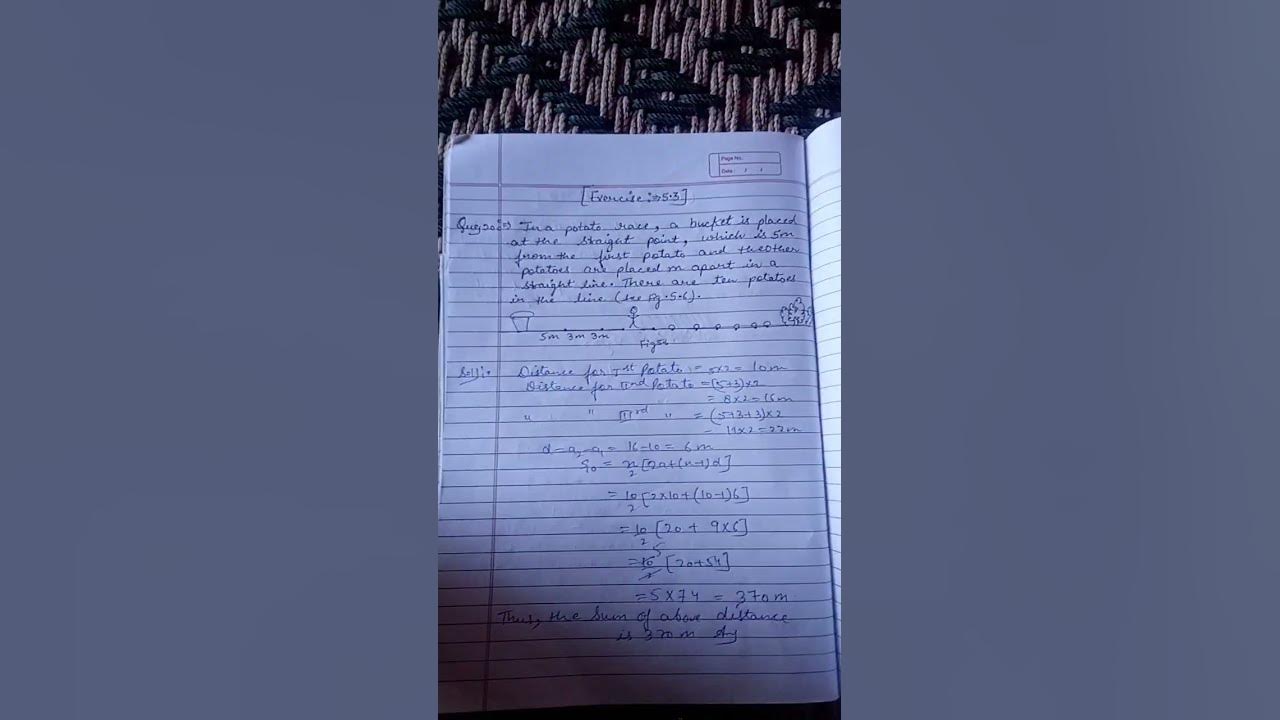 Page No.
Date : / /
[Exercise :⇒ 5.3]
Que 20 ⇒ In a potato race, a bucket is placed
at the straight point, which is 5m
from the first potato and the other
potatoes are placed m apart in a
straight line. There are ten potatoes
in the line (see fig. 5.6).
5m 3m 3m
Fig 5.6
Sol :- Distance for Ist Potato = 5×2 = 10m
Distance for IInd Potato = (5+3)×2
= 8×2 = 16m
" " IIIrd " = (5+3+3)×2
= 11×2 = 22m
d = a2 - a1 = 16-10 = 6m
S10 = n/2 [2a+(n-1)d]
= 10/2 [2×10+(10-1)6]
= 10/2 [20 + 9×6]
5
= 10/2 [20+54]
= 5×74 = 370m
Thus, the sum of above distance
is 370m